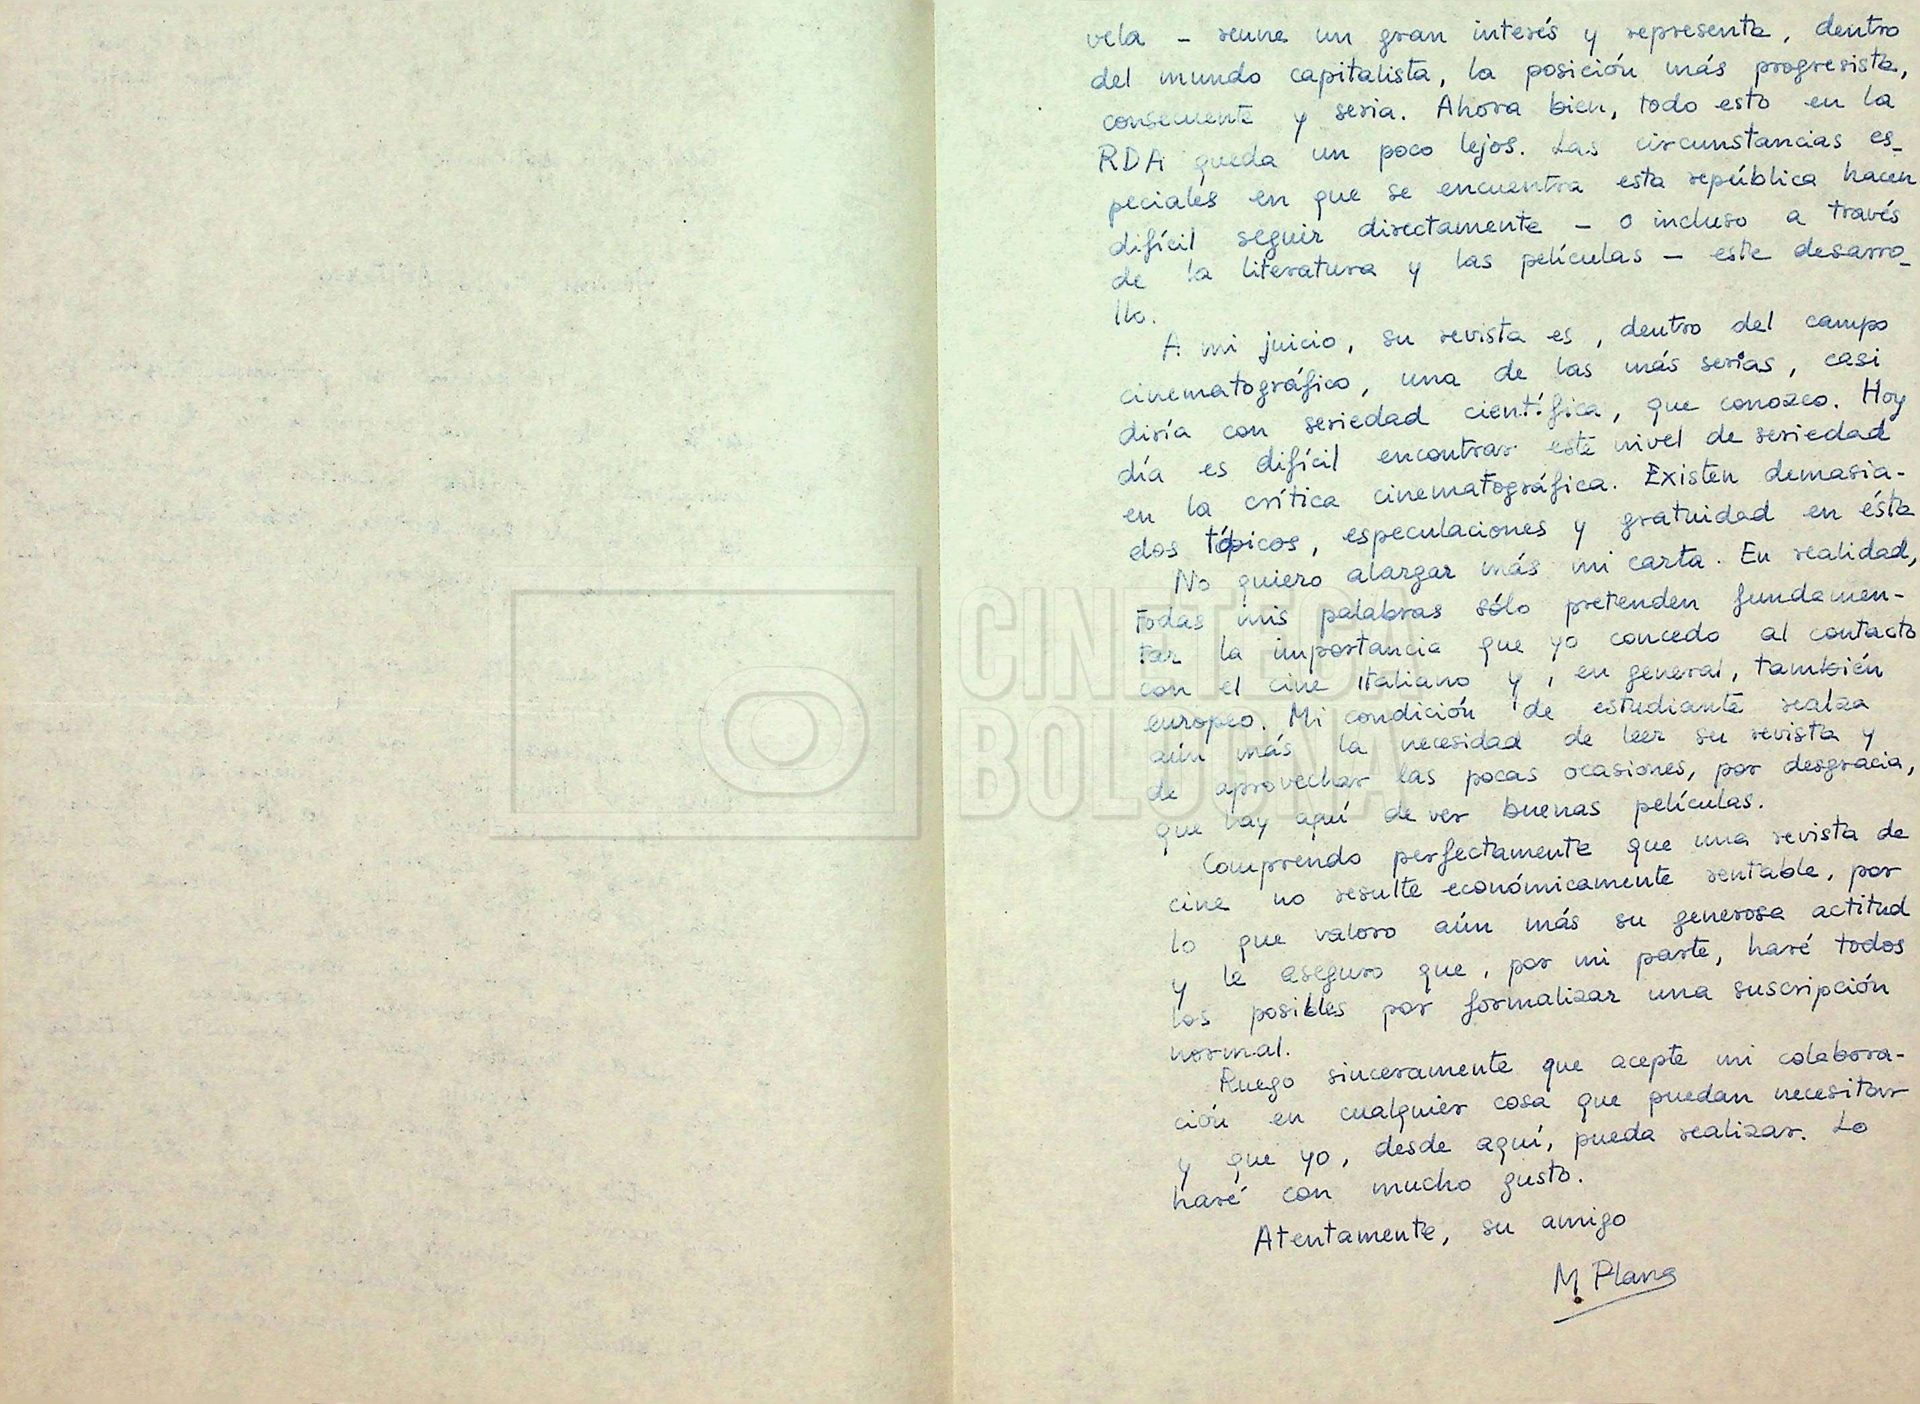 vela – reune un gran interés y representa, dentro
del mundo capitalista, la posición más progresista,
consecuente y seria. Ahora bien, todo esto en la
RDA queda un poco lejos. Las circunstancias es-
peciales en que se encuentra esta república hacen
difícil seguir directamente – o incluso a través
de la literatura y las películas – este desarro-
llo.
A mi juicio, su revista es, dentro del campo
cinematográfico, una de las más serias, casi
diría con seriedad científica, que conozco. Hoy
día es difícil encontrar este nivel de seriedad
en la crítica cinematográfica. Existen demasia-
dos tópicos, especulaciones y gratuidad en ésta
No quiero alargar más mi carta. En realidad,
todas mis palabras sólo pretenden fundamen-
tar la importancia que yo concedo al contacto
con el cine italiano y, en general, también
europeo. Mi condición de estudiante realza
aún más la necesidad de leer su revista y
de aprovechar las pocas ocasiones, por desgracia,
que hay aquí de ver buenas películas.
Comprendo perfectamente que una revista de
cine no resulte económicamente rentable, por
lo que valoro aún más su generosa actitud
y le aseguro que, por mi parte, haré todos
los posibles por formalizar una suscripción
normal.
Ruego sinceramente que acepte mi colabora-
ción en cualquier cosa que puedan necesitar
y que yo, desde aquí, pueda realizar. Lo
haré con mucho gusto.
Atentamente, su amigo
M. Plana
CINETECA
BOLOGNA